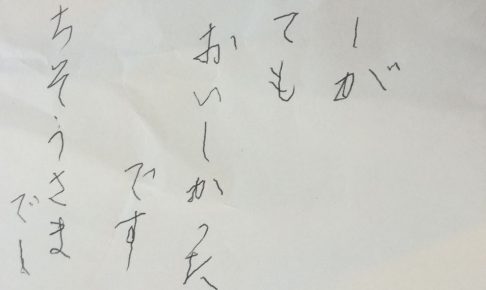 ーが
ても
おいしかった
です
ちそうさま
でし